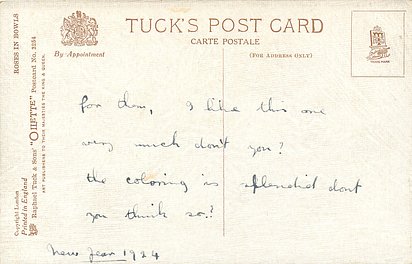 TUCK'S POST CARD
CARTE POSTALE
By Appointment
(FOR ADDRESS ONLY)
TRADE MARK
ROSES IN BOWLS
Raphael Tuck & Sons' "OILETTE" Postcard No. 3154
ART PUBLISHERS TO THEIR MAJESTIES THE KING & QUEEN.
Copyright London
Printed in England
for dem, I like this one
very much don't you?
the coloring is splendid dont
you think so?
New Year 1924